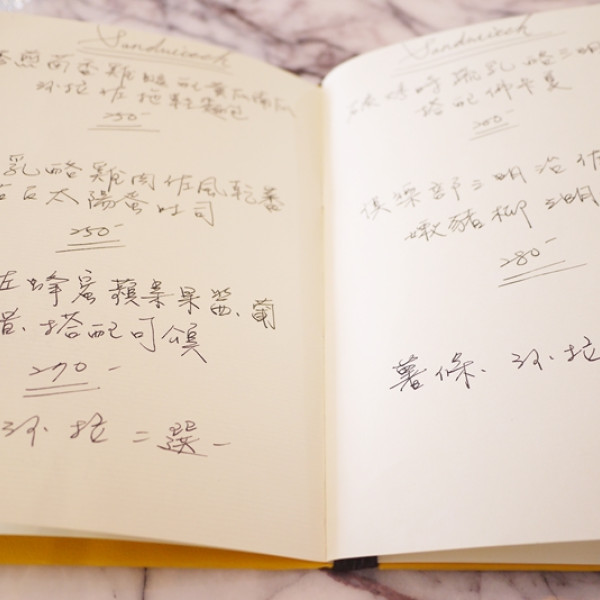 Sandwich
煎南香雞腿配黃瓜南瓜
沙拉佐拖鞋麵包
250-
乳酪雞肉佐風乾蕃
太陽蛋吐司
250-
佐蜂蜜蘋果果醬、葡
萄、搭配可頌
270-
沙拉 二選一
Sandwich
乳酪三明
搭配佛卡夏
260-
俱樂部三明治佐
嫩豬柳三明
280-
薯條、沙拉